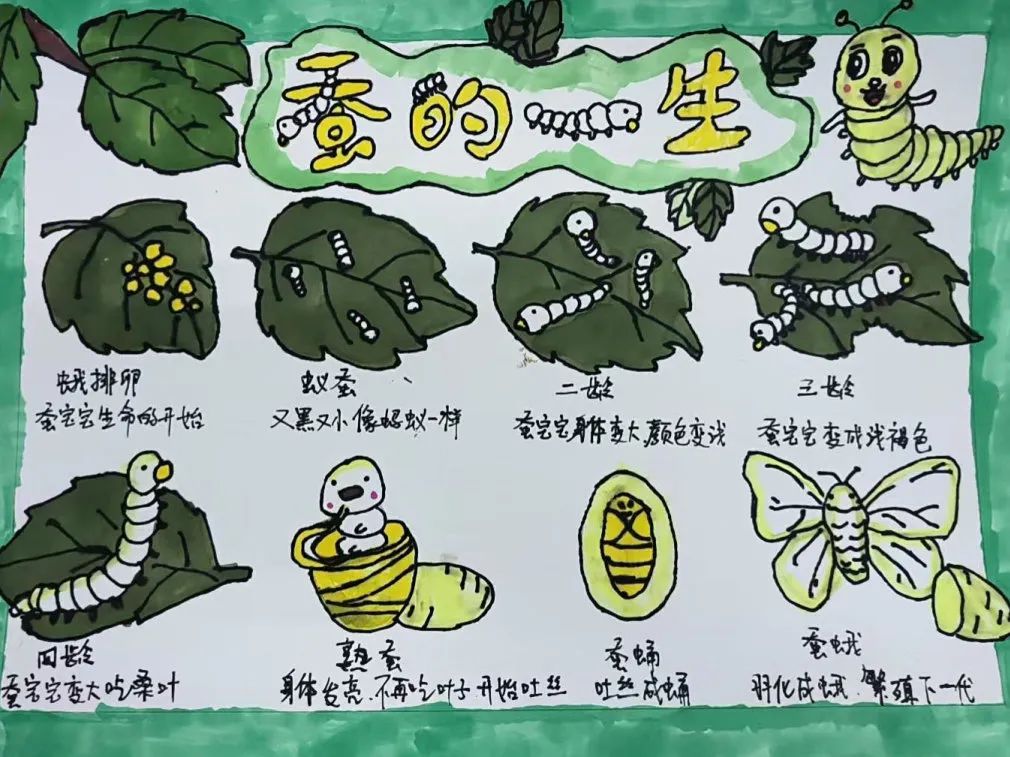 蚕的一生
蛾排卵
蚕宝宝生命的开始
蚁蚕
又黑又小像蚂蚁一样
二龄
蚕宝宝身体变大,颜色变浅
三龄
蚕宝宝变成浅褐色
四龄
蚕宝宝变大吃桑叶
熟蚕
身体发亮.不再吃叶子开始吐丝
蚕蛹
吐丝成蛹
蚕蛾
羽化成蛾.繁殖下一代